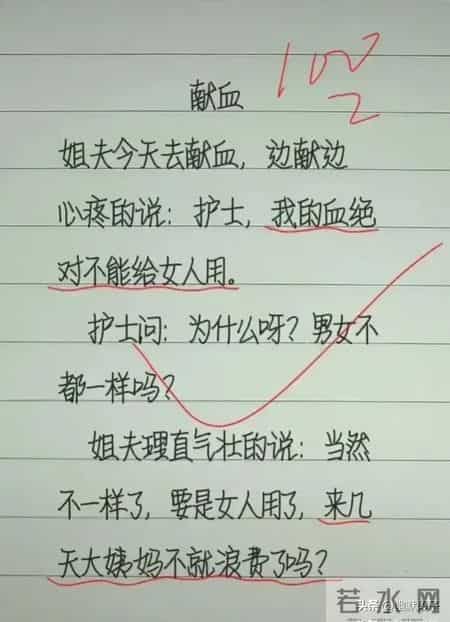 献血
100
姐夫今天去献血，边献边
心疼的说：护士，我的血绝
对不能给女人用。
护士问：为什么呀？男女不
都一样吗？
姐夫理直气壮的说：当然
不一样了，要是女人用了，来几
天大姨妈不就浪费了吗？
若水网